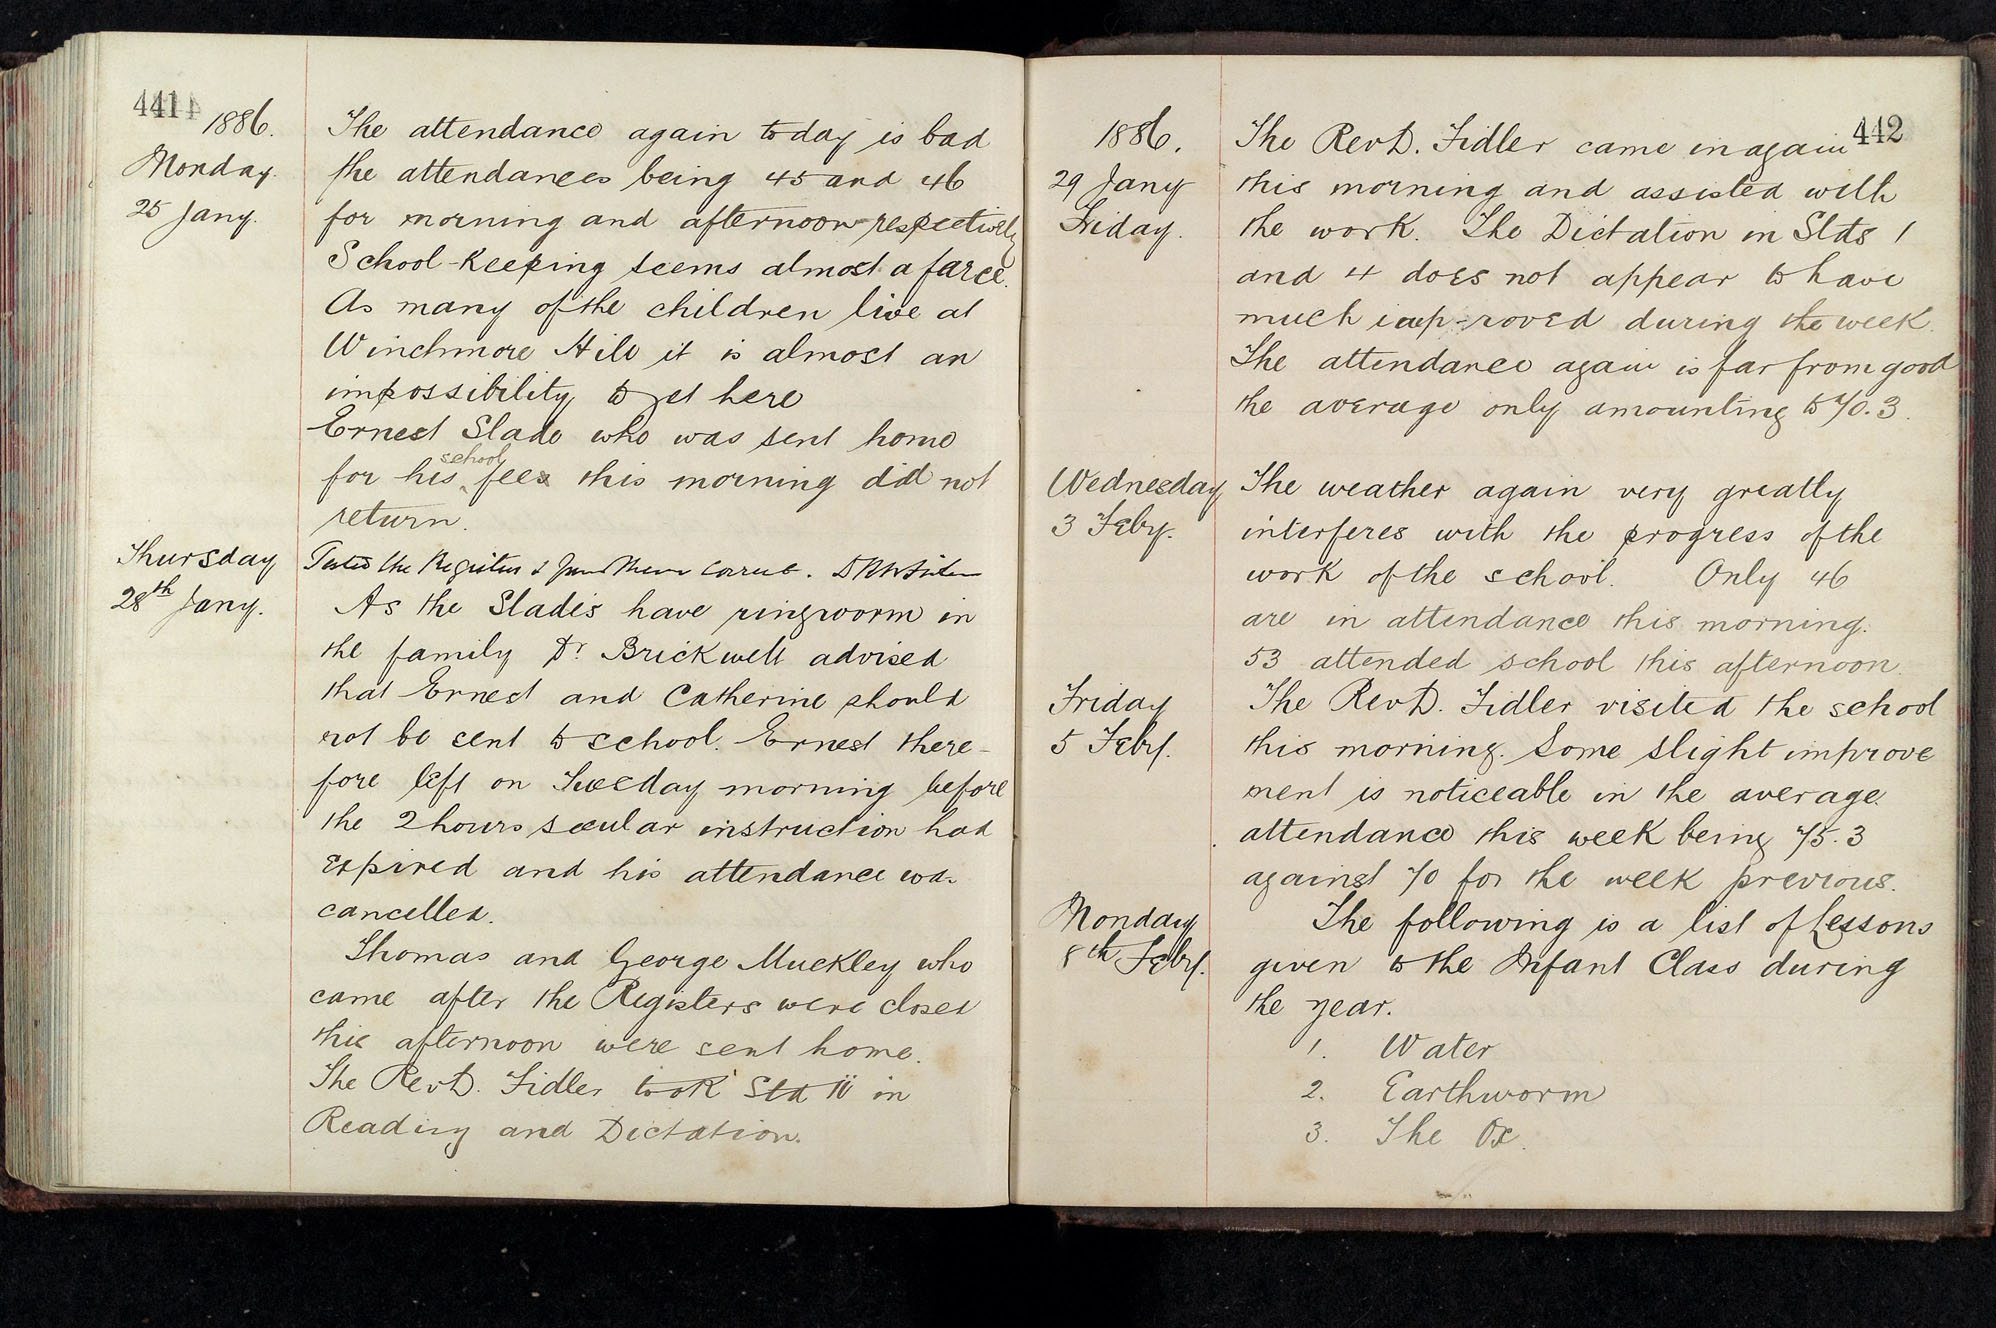 441
1886.
Monday
25 Jany.
The attendance again today is bad
the attendances being 45 and 46
for morning and afternoon respectively
School-Keeping seems almost a farce.
As many of the children live at
Winchmore Hill it is almost an
impossibility to get here
Ernest Slade who was sent home
for his school fees this morning did not
return.
Thursday
28th Jany.
Tested the Registers & found them correct.
As the Slades have ringworm in
the family Dr. Brickwell advised
that Ernest and Catherine should
not be sent to school. Ernest there-
fore left on Tuesday morning before
the 2 hours secular instruction had
expired and his attendance was
cancelled.
Thomas and George Muckley who
came after the Registers were closed
this afternoon were sent home.
The Revd. Fidler took Std II in
Reading and Dictation.
442
1886.
29 Jany
Friday.
The Revd. Fidler came in again
this morning and assisted with
the work. The Dictation in Stds 1
and 4 does not appear to have
much improved during the week.
The attendance again is far from good
the average only amounting to 70.3.
Wednesday
3 Feby.
The weather again very greatly
interferes with the progress of the
work of the school. Only 46
are in attendance this morning.
53 attended school this afternoon.
Friday
5 Feby.
The Revd. Fidler visited the school
this morning. Some slight improve
ment is noticeable in the average
attendance this week being 75.3
against 70 for the week previous.
Monday
8th Feby.
The following is a list of Lessons
given to the Infant Class during
the year.
1. Water
2. Earthworm
3. The Ox.